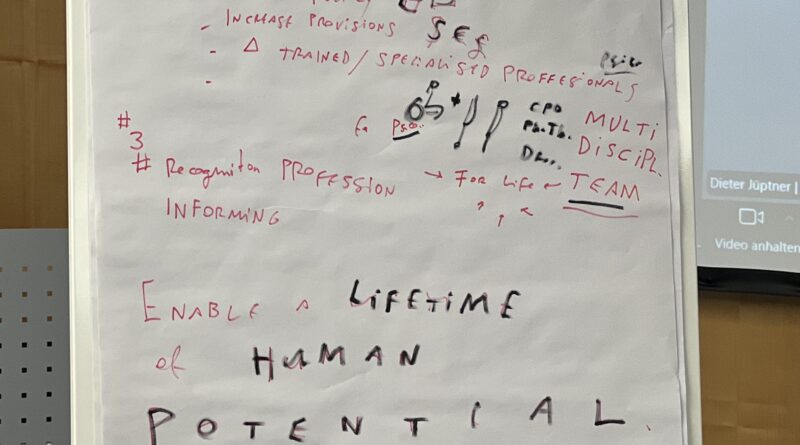 - INCREASE PROVISIONS $ € £
- Δ TRAINED/SPECIALISED PROFFESIONALS
-
CPO MULTI
Ph.Th. DISCIPL.
#
3
# Recognition PROFESSION → FOR Life ← TEAM
INFORMING
ENABLE A LIFETIME
of HUMAN
POTENTIAL.
Dieter Jüptner |
Video anhalten